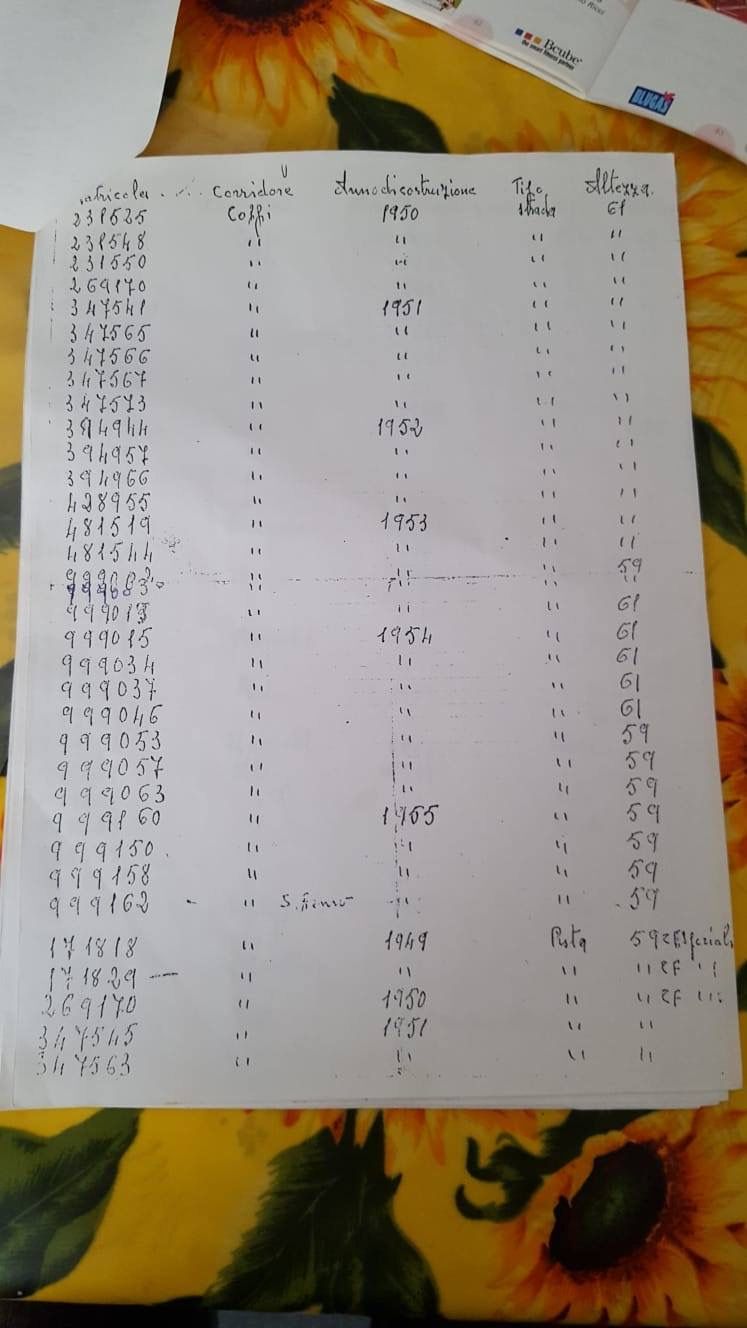 Bcube
the smart fitness partner
BLUGAS
Matricola Corridore Anno di costruzione Tipo Altezza
231525 Coppi 1950 strada 61
231548 " " " "
231550 " " " "
269170 " " " "
347541 " 1951 " "
347565 " " " "
347566 " " " "
347567 " " " "
347573 " " " "
394944 " 1952 " "
394957 " " " "
394966 " " " "
428955 " " " "
481519 " 1953 " "
481544 " " " "
" " " 59
" " " "
999013 " " " 61
999015 " 1954 " 61
999034 " " " 61
999037 " " " 61
999046 " " " 61
999053 " " " 59
999057 " " " 59
999063 " " " 59
999160 " 1955 " 59
999150 " " " 59
999158 " " " 59
999162 " " " 59
171818 " 1949 Pista 59 CF Speciali
171829 " " " " CF "
269170 " 1950 " " CF "
347545 " 1951 " "
347563 " " " "